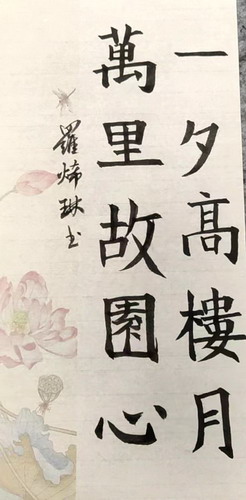 一夕高樓月
萬里故園心
羅烯琳书